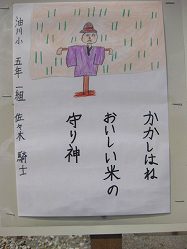 かかしはね
おいしい米の
守り神
油川小 五年一組 佐々木 騎士